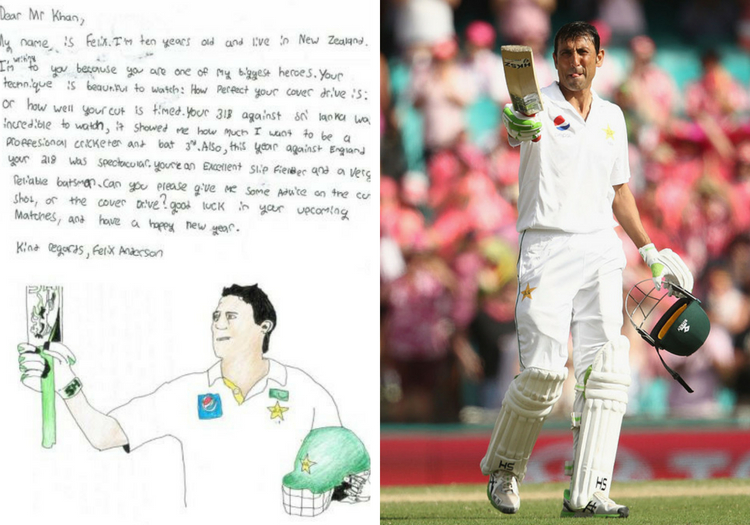 Dear Mr Khan,
My name is Felix. I'm ten years old and live in New Zealand.
I'm writing to you because you are one of my biggest heroes. Your
technique is beautiful to watch: How Perfect your cover drive is:
or how well your cut is timed. Your 313 against Sri Lanka wa
incredible to watch, it showed me how much I want to be a
proffesional cricketer and bat 3rd. Also, this year against England
your 218 was spectacular. you're an Excellent Slip Fielder and a very
Reliable batsman. Can you please give me some Advice on the cu
shot, or the cover Drive? good luck in your upcoming
Matches, and have a happy new year.
Kind Regards, Felix Anderson
HS
HS